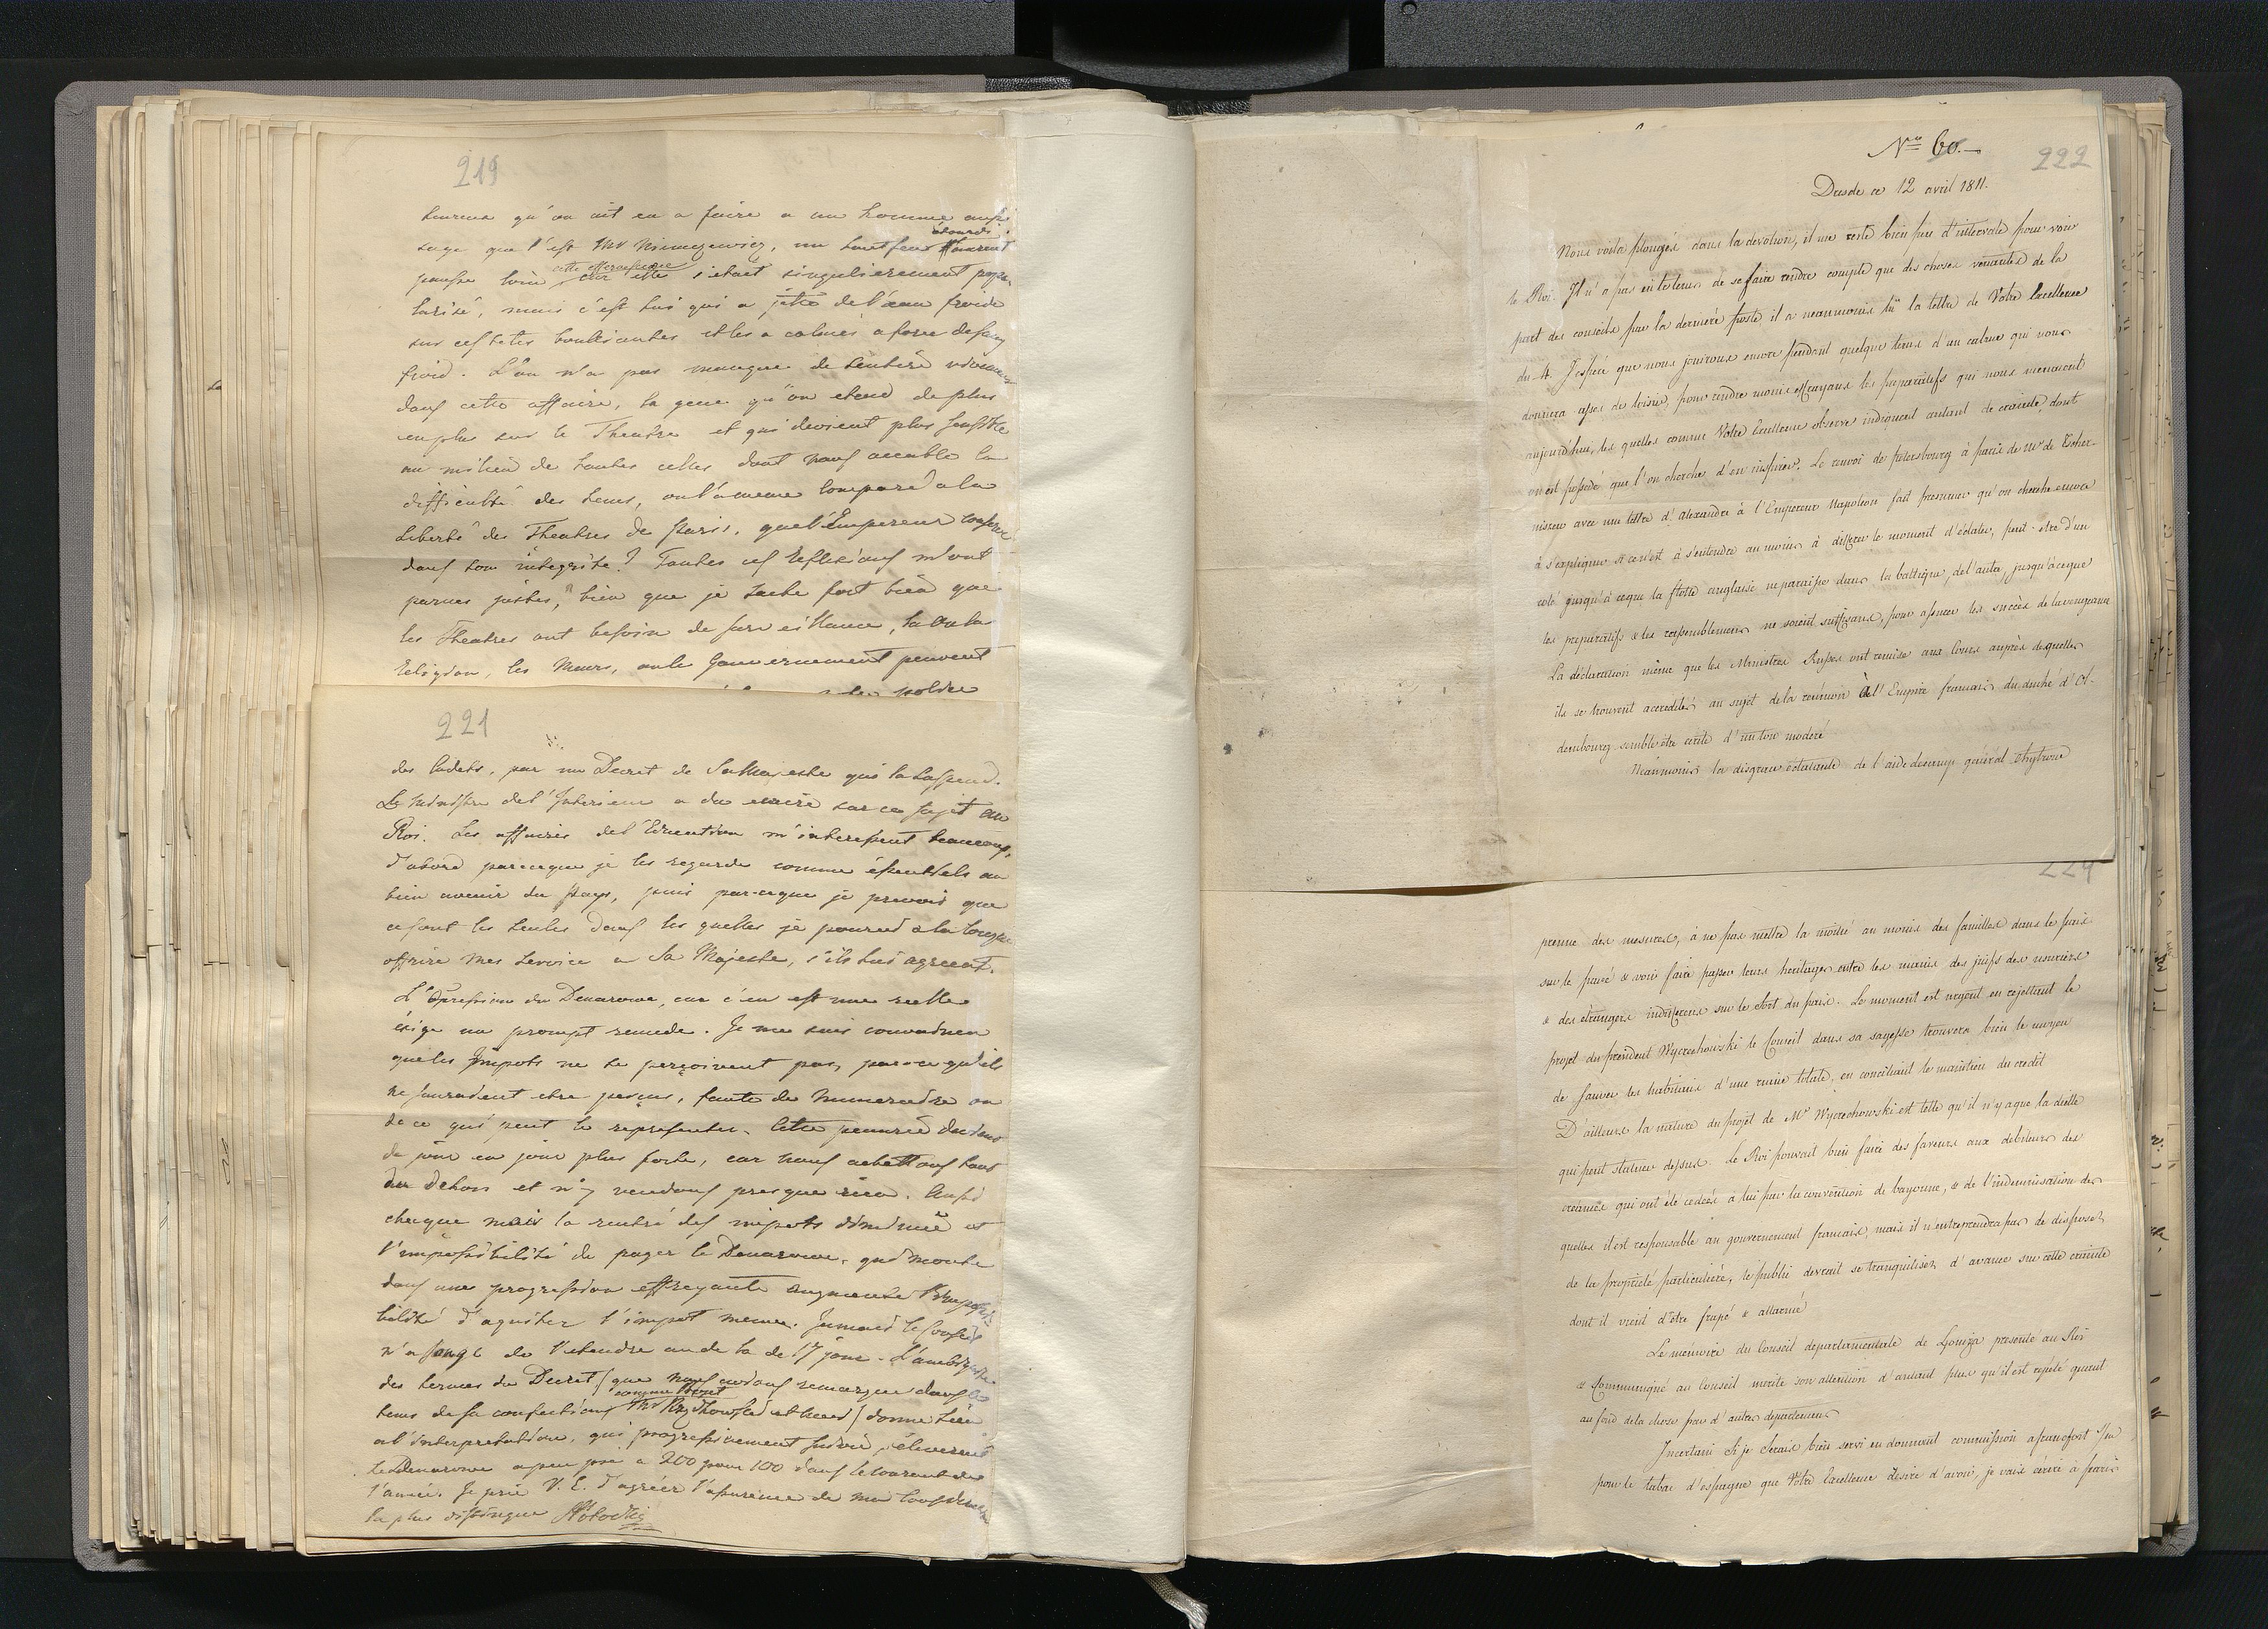 219
heureux qu'on ait eu a faire a un homme aussi
sage que l'est Mr Niemcewicz, un tout seul étourdi
cette effervescence s'était singulierement popu
larisé, mais c'est lui qui a jetté de l'eau froide
sur ces tetes bouliantes et les a calmés a force de sang
froid. L'on n'a pas manqué de
dans cette affaire, la gene qu'on etend de plus
en plus sur le Theatre et qui devient plus sensible
au milieu de toutes celles dont nous accable la
difficulté des tems, on l'a meme comparé a la
Liberté des Theatres de Paris, que l'Empereur conserve
dans son integrité? Toutes ces reflexions m'ont
parues justes, bien que je sache fort bien que
les Theatres ont besoin de surveillance, la ou la
Religion, les Moeurs, ou le Gouvernement peuvent
221
des Cadets, par un Decret de Sa Majesté qui la suspend.
Le Ministre de l'Interieur a du ecrire sur ce sujet au
Roi. Les affaires de l'Education m'interessent beaucoup,
d'abord parceque je les regarde comme essentiels au
bien avenir du Pays, puis par-ceque je prevois que
ce sont les seules dans les quelles je pourrai a la longue
offrire mes service a Sa Majesté, s'ils lui agreent.
L'Opression du Denarowe, car c'en est une reelle
exige un prompt remede. Je me suis convaincu
que les Impots ne se perçoivent pas, parce qu'ils
ne sauraient etre perçus, faute de Numeraire ou
de ce qui peut le representer. Cette penurie devient
de jour en jour plus forte, car nous achettons tout
du dehors et n'y vendons presque rien. Aussi
chaque mois la rentré des impots diminue et
l'impossibilité de payer le Denarowe, qui monte
dans une progression effrayante augmente l'impossi-
bilité d'aquiter l'impot meme. Jamais le Conseil
n'a songé de l'etendre au de la de 17 pour. L'ambiguité
des termes du Decret (que nous avons remarqué dans le
tems de sa confection donne lieu
a l'interpretation, qui progressivement suivie, éleverait
le Denarowe a peu près a 200 pour 100 dans le courant de
l'année. Je prie V. E. d'agréer l'assurance de ma consideration
la plus distinguée SPotocki
No 60.
222
Dresde ce 12 avril 1811.
Nous voila plongés dans la devotion, il me reste bien peu d'intervale pour voir
le Roi. Il n'a pas eu le tems de se faire rendre compte que des choses venantes de la
part des conseils par la derniere poste, il a neanmoins lû la lettre de Votre Excellence
du 4. J'espére que nous jouirons encore pendant quelque tems d'un calme qui nous
donnera assez de loisir, pour rendre moins effrayans les preparatifs qui nous menacent
aujourd'hui, les quelles comme Votre Excellence observe indiquent autant de crainte, dont
on est possedé que l'on cherche d'en inspirer. Le renvoi de Petersbourg à Paris de Mr de Tcher-
nicheu avec une lettre d'Alexandre à l'Empereur Napoleon fait presumer qu'on cherche encore
à s'expliquer si ce n'est à s'entendre au moins à differer le moment d'éclater, peut-etre d'un
coté jusqu'à ceque la flotte anglaise ne paraisse dans la baltique, de l'autre, jusqu'à ceque
les preparatifs & les rassemblemens ne soient suffisans, pour assurer les succès de la vengeance
La déclaration même que les Ministres Russes ont remise aux Cours auprès desquelles
ils se trouvent accredités au sujet de la reunion à l'Empire francais du duché d'Ol-
denbourg semble etre ecrite d'un ton moderé
Néanmoins la disgrace éclatante de l'aide de camp général
224
prenne des mesures, à ne pas mettre la moitié au moins des familles dans le pais
sur le pavé & voir faire passer leurs heritages entre les mains des juifs des usuriers
& des étrangers indifferens sur le sort du pais. Le moment est urgent en rejettant le
projet du président Wyczechowski le Conseil dans sa sagesse trouvera bien le moyen
de sauver les habitans d'une ruine totale, en conciliant le maintien du credit
D'ailleurs la nature du projet de Mr Wyczechowski est telle qu'il n'y a que la diette
qui peut statuer dessus. Le Roi pouvait bien faire des faveurs aux debiteurs des
créances qui ont été cedées à lui par la convention de bayonne, & de l'indemnisation des
quelles il est responsable au gouvernement francais, mais il n'entreprendra pas de disposer
de la propriété particuliere, le public devrait se tranquiliser d'avance sur cette crainte
dont il vient d'être frapé & allarmé
Le memoire du Conseil departamentale de Lomza presenté au Roi
& Communiqué au Conseil merite son attention d'autant plus qu'il est repeté quant
au fond de la chose par d'autres departemens
Incertain si je serais bien servi en donnant commission a francfort s/m
pour le tabac d'espagne que Votre Excellence desire d'avoir, je vais ecrire a paris